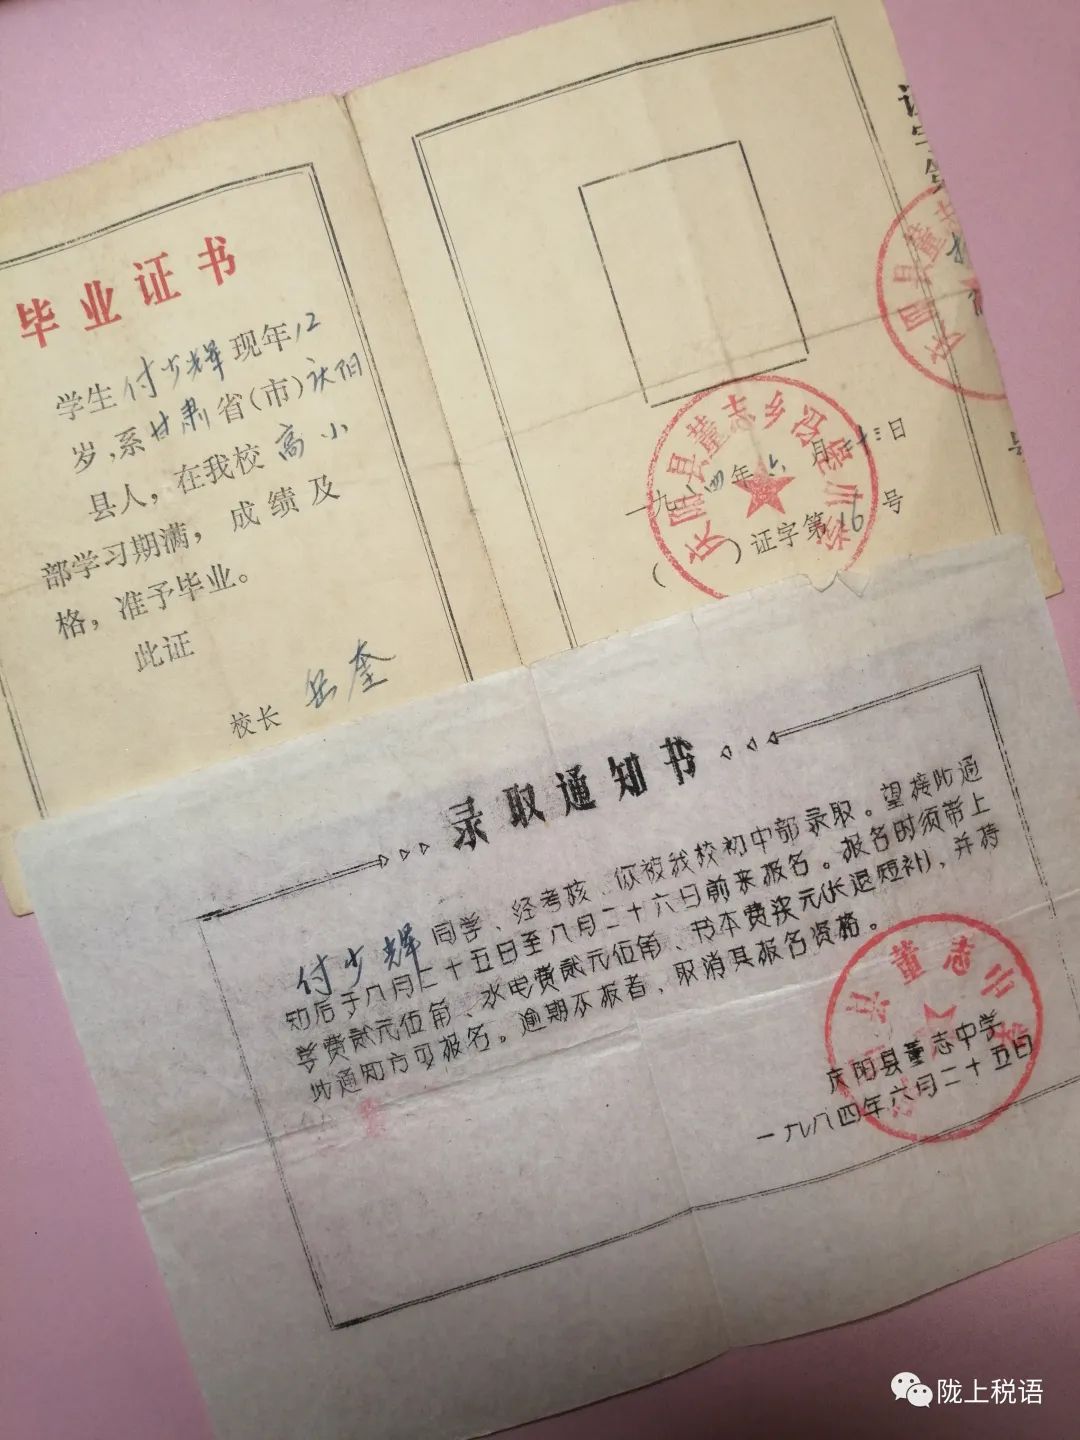 毕业证书
学生付少辉现年12
岁，系甘肃省(市)庆阳
县人，在我校高小
部学习期满，成绩及
格，准予毕业。
此证
校长 岳奎
一九八四年六月二十三日
( )证字第16号
庆阳县董志乡
证字第
号
录取通知书
付少辉同学、经考核、你被我校初中部录取。望接此通
知后于八月二十五日至八月二十六日前来报名。报名时须带上
学费贰元伍角、水电费贰元伍角、书本费柒元(长退短补)，并持
此通知方可报名。逾期不报者，取消其报名资格。
庆阳县董志中学
一九八四年六月二十五日
陇上税语